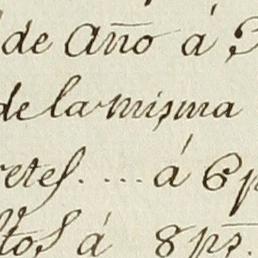 de año á 3
de la misma
retes.... á 6 p
tos á 8 ps.